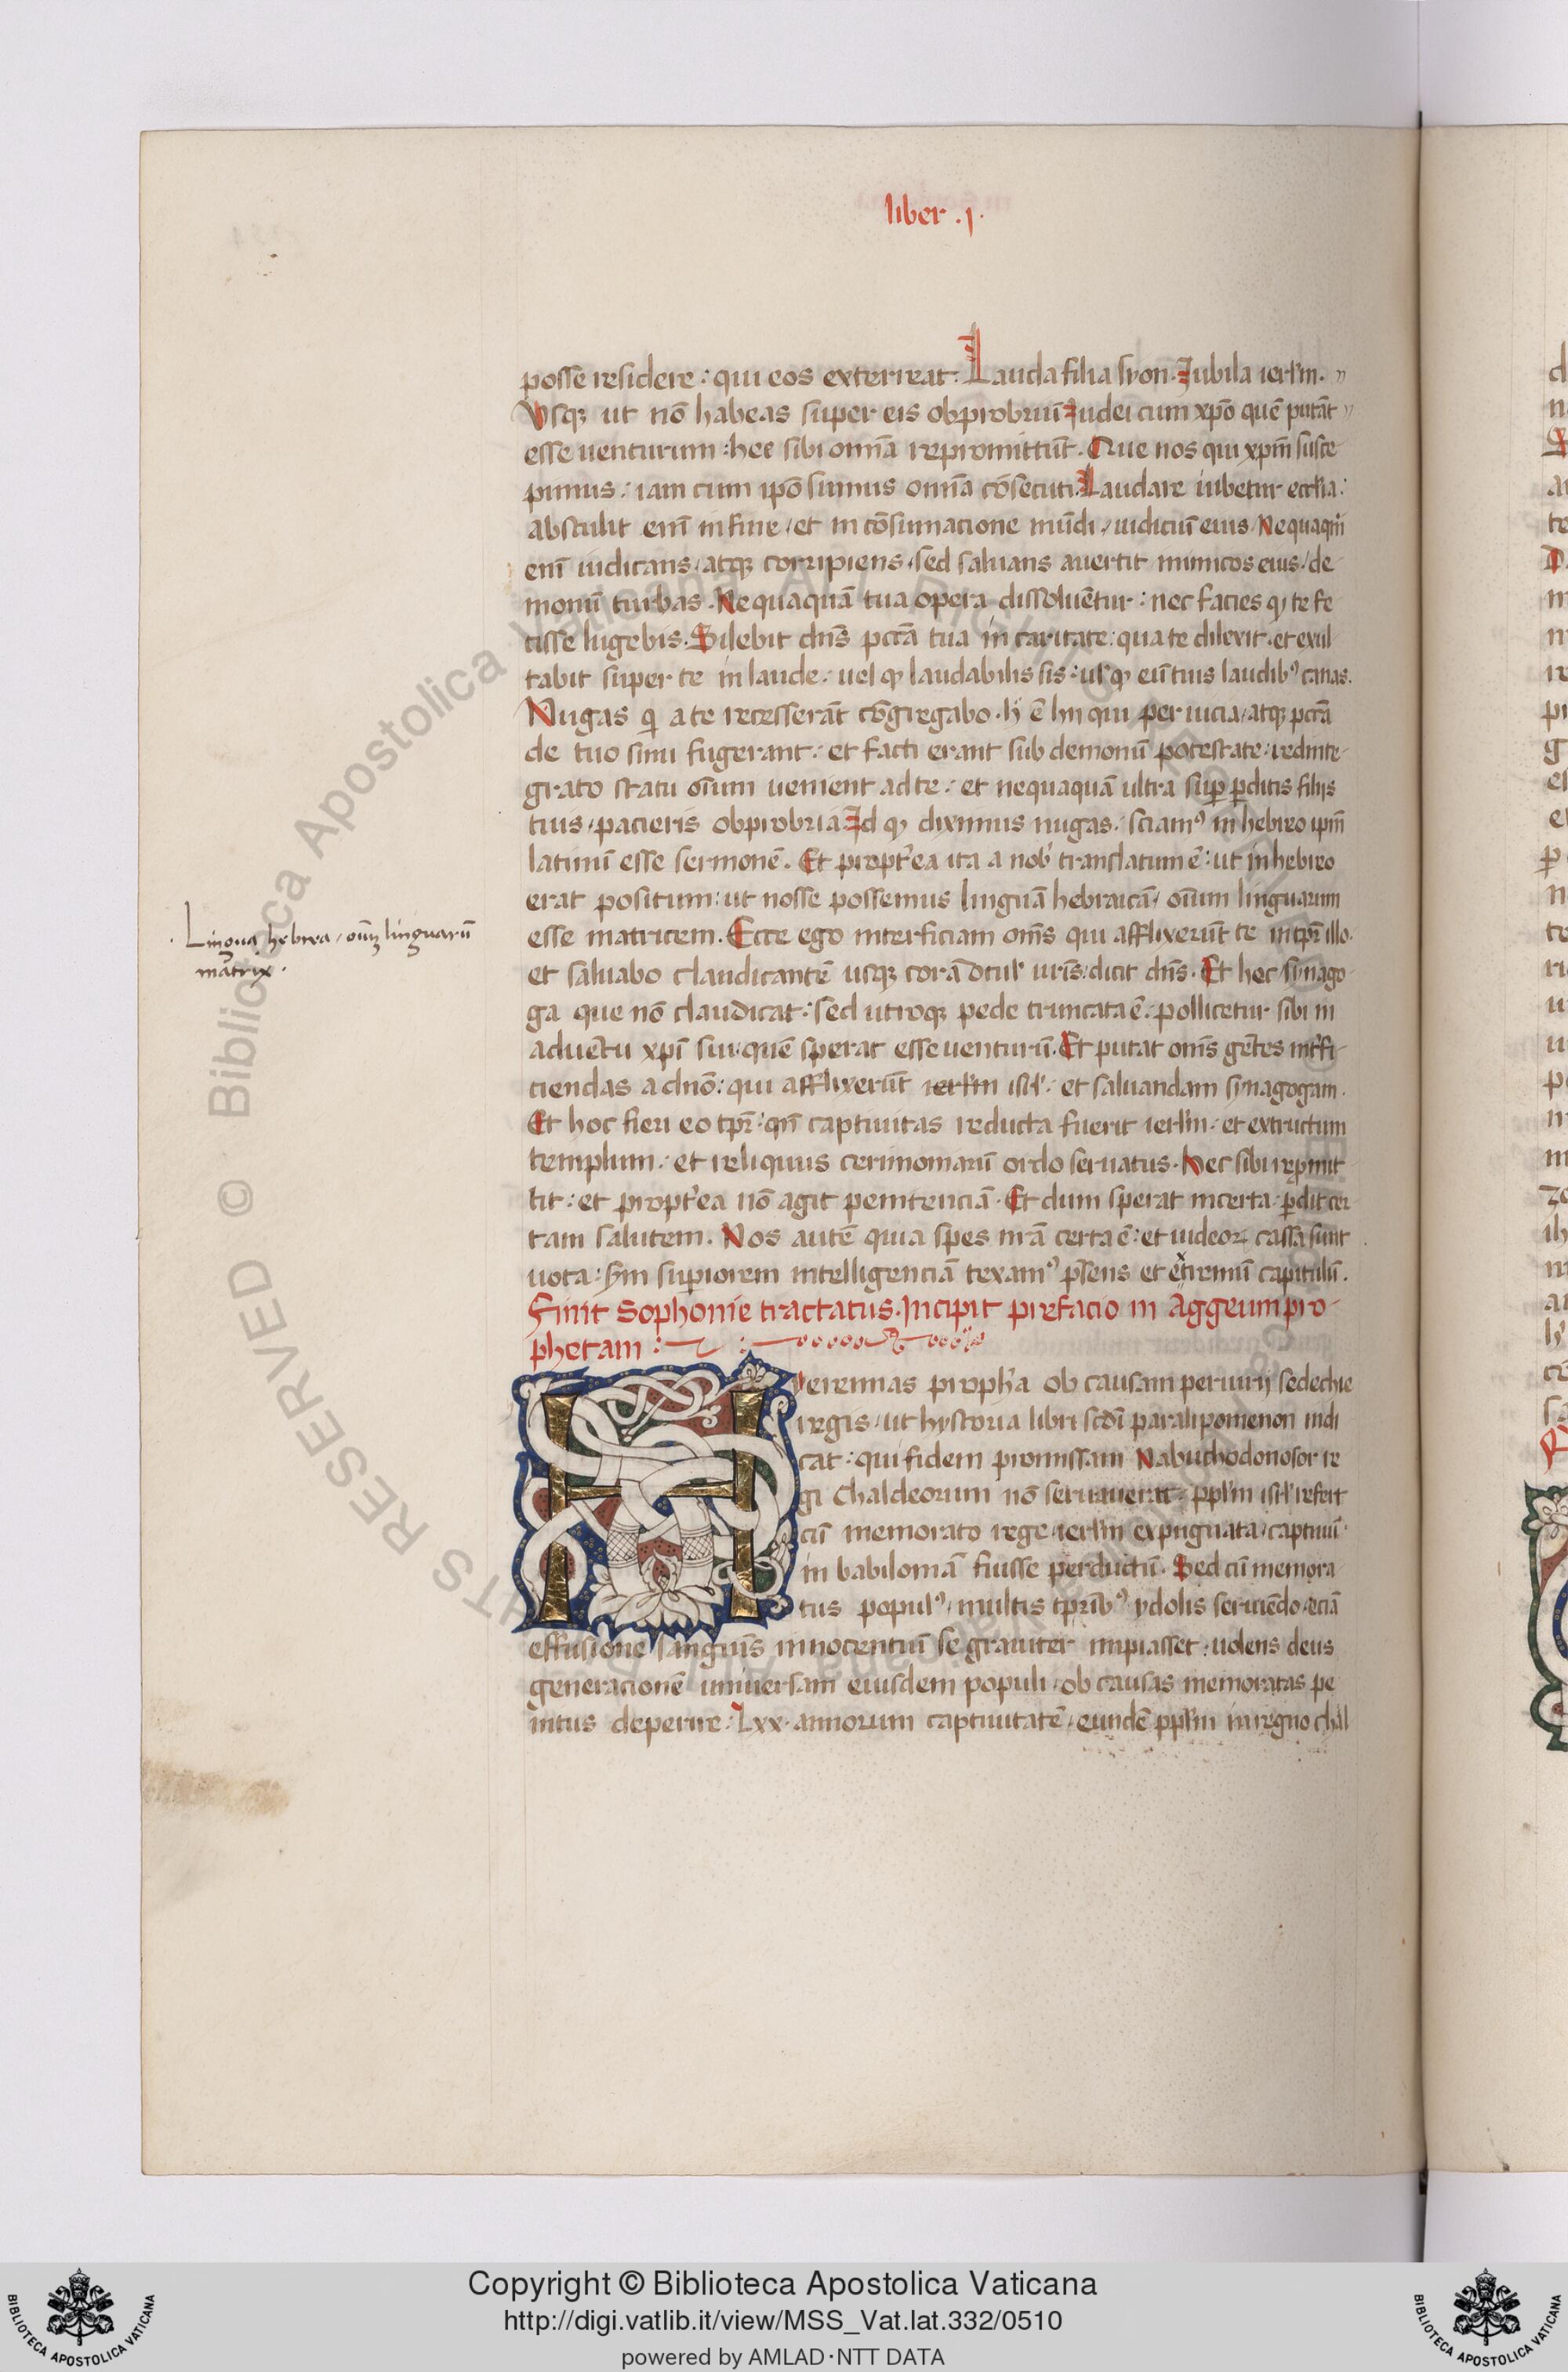 liber .j.
posse residere : qui eos exterreat. Lauda filia syon. Jubila ierlm. "
Vsqȝ ut nō habeas super eis obprobriū Judei cum xpō quē putāt "
esse uenturum : hec sibi omīa repromittūt. Que nos qui xpm̄ susce
pimus : iam cum ipō sumus omīa cōsecuti. Laudare iubetur ecclia :
abstulit enī in fine / et in cōsumacione mūdi / iudiciū eius / Nequaqm̄
enī iudicans / atqȝ corripiens / sed saluans auertit inimicos eius / de
monū turbas. Nequaquā tua opera dissoluētur : nec facies qꝫ te fe
cisse lugebis. Silebit dns̄ pctā tua in caritate : qua te dilexit. et exul
tabit super te in laude : uel qꝫ laudabilis sis : uel qꝫ eū tuis laudibꝰ canas.
Nugas qi a te recesserāt cōgregabo. h' ē hii qui per uicia / atqȝ pctā
de tuo sinu fugerant : et facti erant sub demonū potestate : redinte-
grato statu oīum uenient ad te : et nequaquā ultra suꝑ ꝑditis filijs
tuis / pacieris obprobria Id qꝫ diximus nugas : sciamꝰ in hebreo ipm̄
latinū esse sermonē. Et propt'ea ita a nob' translatum ē : ut in hebreo
erat positum : ut nosse possemus linguā hebraicā / oīum linguarum
esse matricem. Ecce ego interficiam oms̄ qui afflixerūt te in tpr̄ illo.
et saluabo claudicantē usqȝ corā ocul' uris̄ : dicit dns̄. Et hec synago-
ga que nō claudicat : sed utroqȝ pede truncata ē : pollicetur sibi in
aduētu xpī sui quē sperat esse uenturū. Et putat oms̄ gētes int'fi-
ciendas a dnō : qui afflixerūt ierlm isrl' : et saluandam synagogam.
Et hoc fieri eo tpr̄ : qn̄ captiuitas reducta fuerit ierlm : et extructum
templum : et reliquus cerimoniarū ordo seruatus. Hec sibi repmit
tit : et propt'ea nō agit penitenciā. Et dum sperat incerta : ꝑdit cer
tam salutem. Nos autē quia spes nrā certa ē : et iudeoꝝ cassa sunt
uota : sm̄ suꝑiorem intelligenciā texamꝰ pn̄s et extremū capitulū.
Finit Sophonie tractatus. Incipit prefacio in Aggeum pro-
phetam :
Ieremias proph'a ob causam periurij sedechie
regis / ut hystoria libri scdī paralipomenon indi
cat : qui fidem promissam Nabuchodonosor re
gi Chaldeorum nō seruauerat : pplm isrl' refert
cū memorato rege / ierlm expugnata / captiuū
in babiloniā fuisse perductū. Sed cū memora-
tus populꝰ / multis tpribꝰ ydolis seruiēdo / eciā
effusione sanguis̄ innocentiū se grauiter impiasset : uolens deus
generacionē uniuersam eiusdem populi / ob causas memoratas pe
nitus deperire : Lxx. annorum captiuitatē / eundē pplm in regno chal
Lingua hebrea / oīuȝ linguarū
matrix.
Copyright © Biblioteca Apostolica Vaticana
http://digi.vatlib.it/view/MSS_Vat.lat.332/0510
powered by AMLAD·NTT DATA